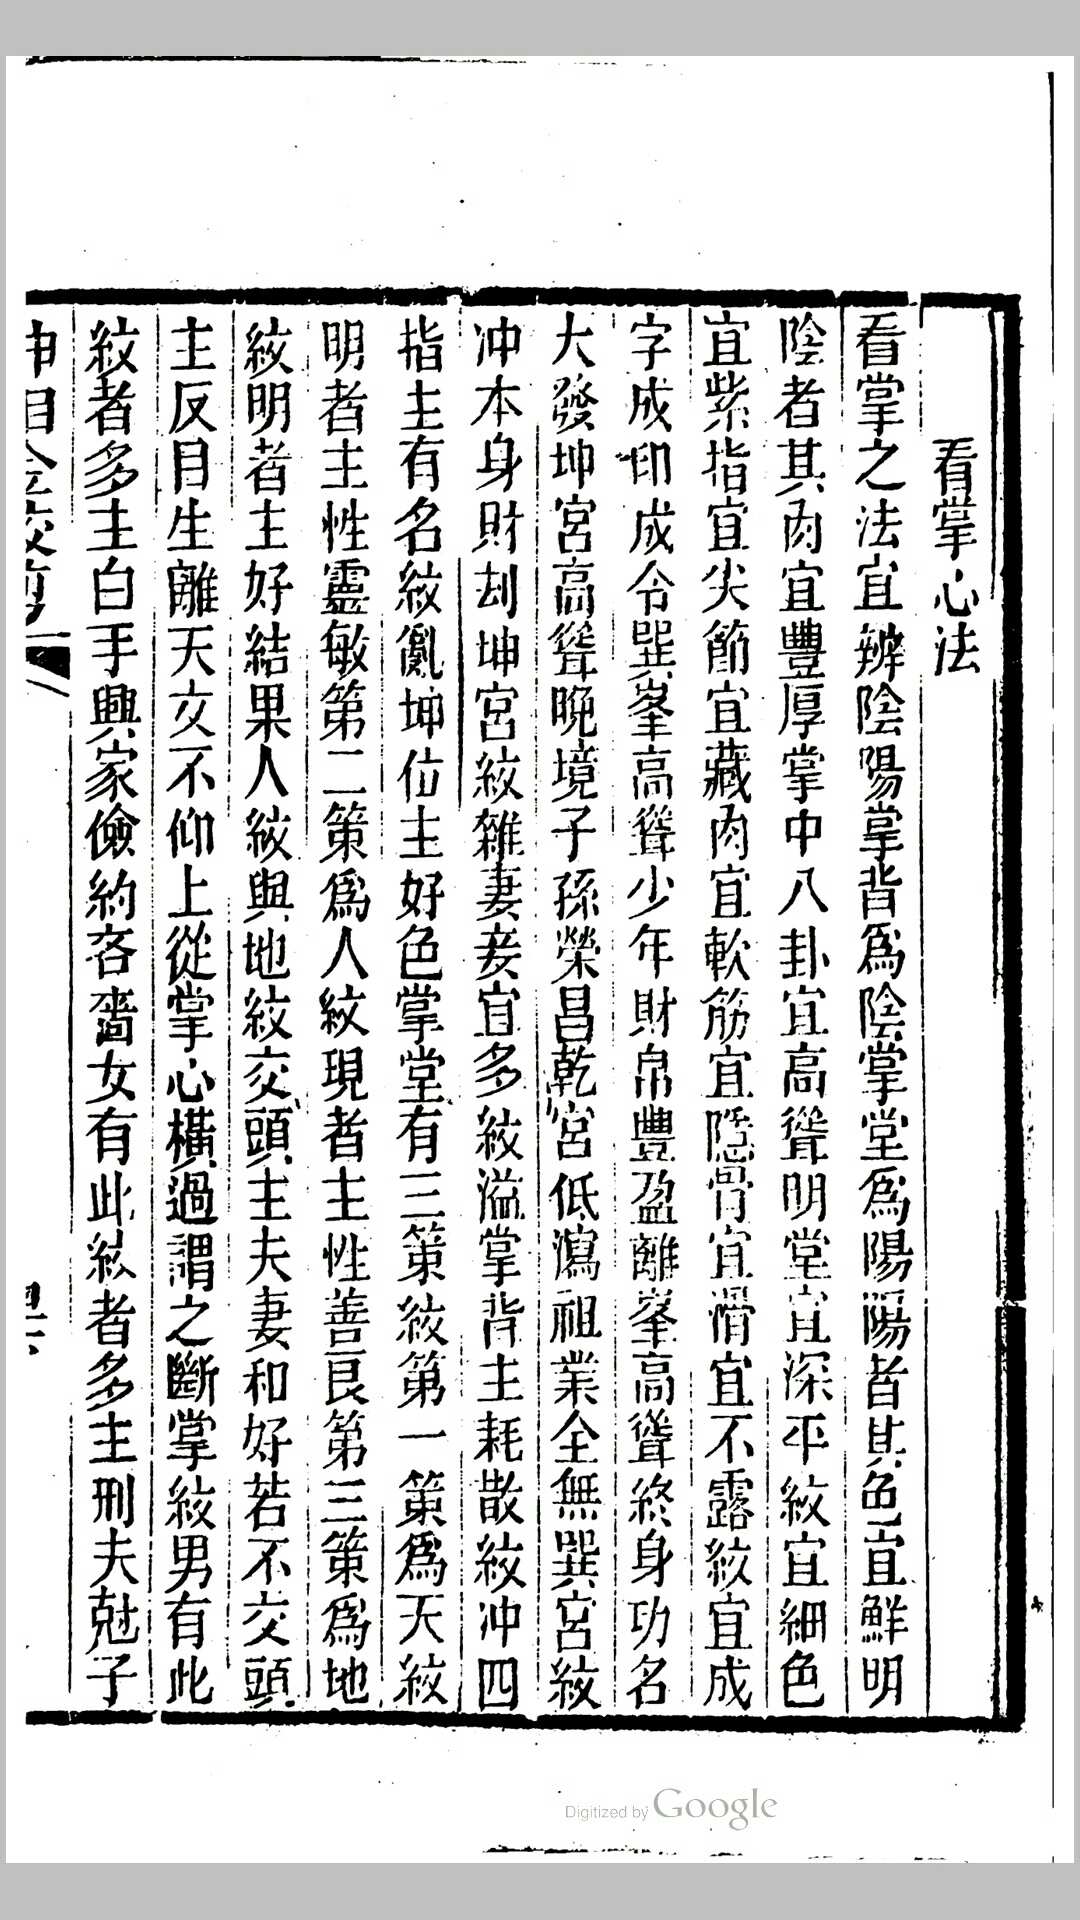 看掌心法
看掌之法宜辨陰陽掌背爲陰掌堂爲陽陽者其色宜鮮明
陰者其肉宜豐厚掌中八卦宜高聳明堂宜深平紋宜細色
宜紫指宜尖節宜藏肉宜軟筋宜隱骨宜滑宜不露紋宜成
字成印成令巽峯高聳少年財帛豐盈離峯高聳終身功名
大發坤宮高聳晚境子孫榮昌乾宮低瀉祖業全無巽宮紋
冲本身財刦坤宮紋雜妻妾宜多紋溢掌背主耗散紋冲四
指主有名紋亂坤位主好色掌堂有三第紋第一第爲天紋
明者主性靈敏第二第爲人紋現者主性善良第三第爲地
紋明者主好結果人紋與地紋交頭主夫妻和好若不交頭
主反目生離天文不仰上從掌心橫過謂之斷掌紋男有此
紋者多主白手興家儉約吝嗇女有此紋者多主刑夫尅子
神相金鉸剪
Digitized by Google